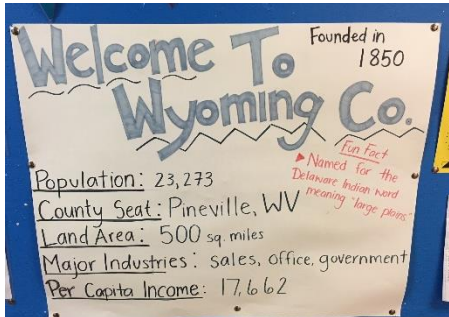 Welcome To
Founded in
1850
Wyoming Co.
Fun Fact
▶ Named for the
Delaware Indian word
meaning "large plains"
Population: 23,273
County Seat: Pineville, WV
Land Area: 500 sq. miles
Major Industries: sales, office, government
Per Capita Income: 17,662